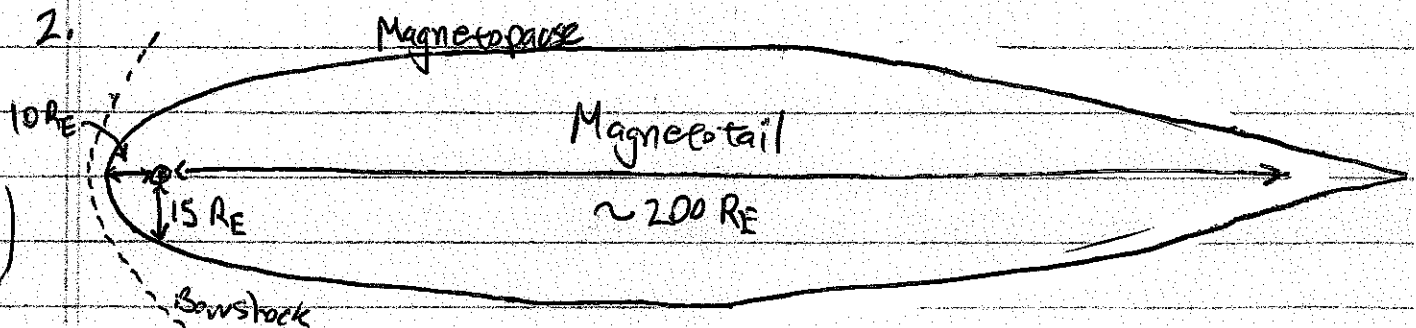 2.
Magnetopause
10 R_E
Magnetotail
15 R_E
~ 200 R_E
Bowshock